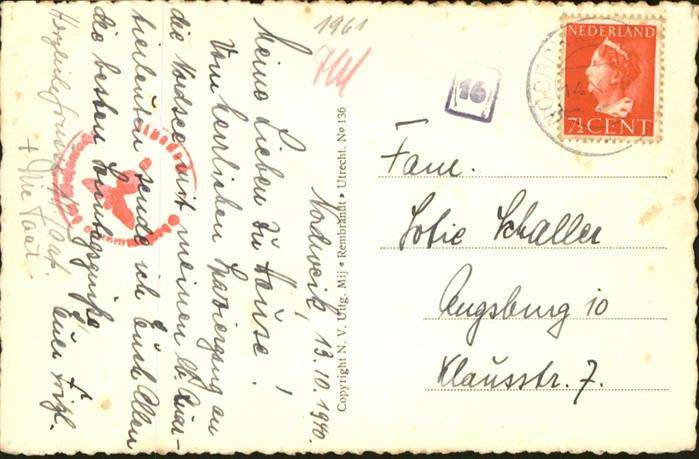 1961
16
NEDERLAND
7½ CENT
Nordweik, 13.10.1940.
Meine Lieben zu Hause!
Vom herrlichen Spaziergang an
die Nordsee mit meinen
sende ich Euch Allen
die besten Sonntagsgrüße
Euer
+ Die Tant
Copyright N. V. Uitg. Mij • Rembrandt • Utrecht. No 136
Fam.
Schaller
Augsburg 10
Klausstr. 7.